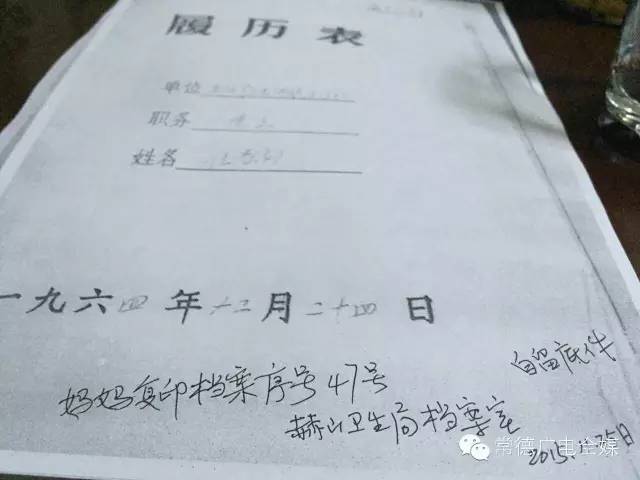 履历表
单位
职务
姓名
一九六四年十二月二十四日
自留底件
妈妈复印档案序号47号
赫山卫生局档案室
2015.11.25日
常德广电全媒